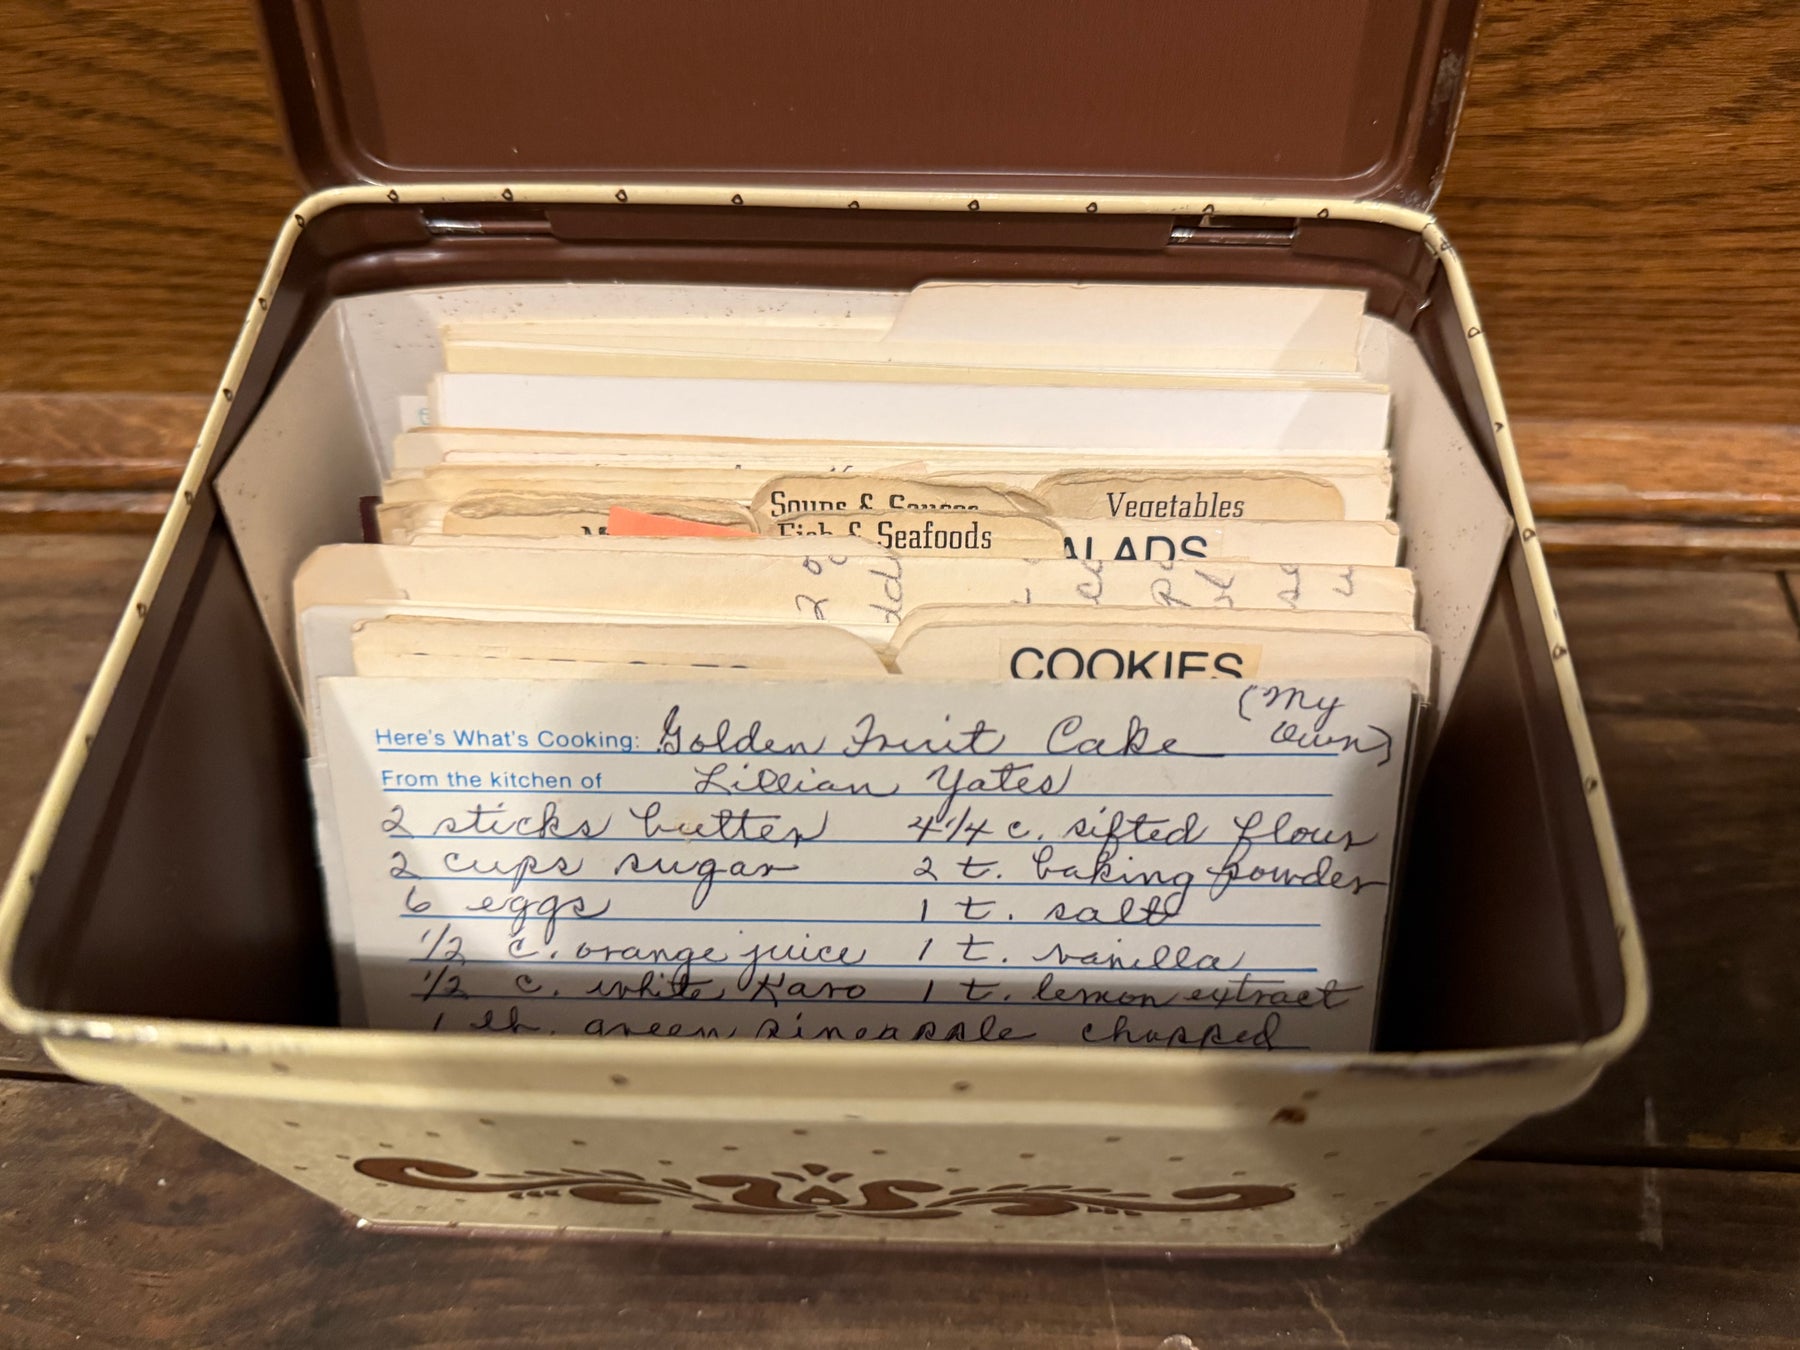 Vegetables
Soups & Sauces
Fish & Seafoods
ALADS
COOKIES
Here's What's Cooking: Golden Fruit Cake (My Own)
From the kitchen of Lillian Yates
2 sticks butter 4 1/4 c. sifted flour
2 cups sugar 2 t. baking powder
6 eggs 1 t. salt
1/2 c. orange juice 1 t. vanilla
1/2 c. white Karo 1 t. lemon extract
1 lb. green pineapple chopped